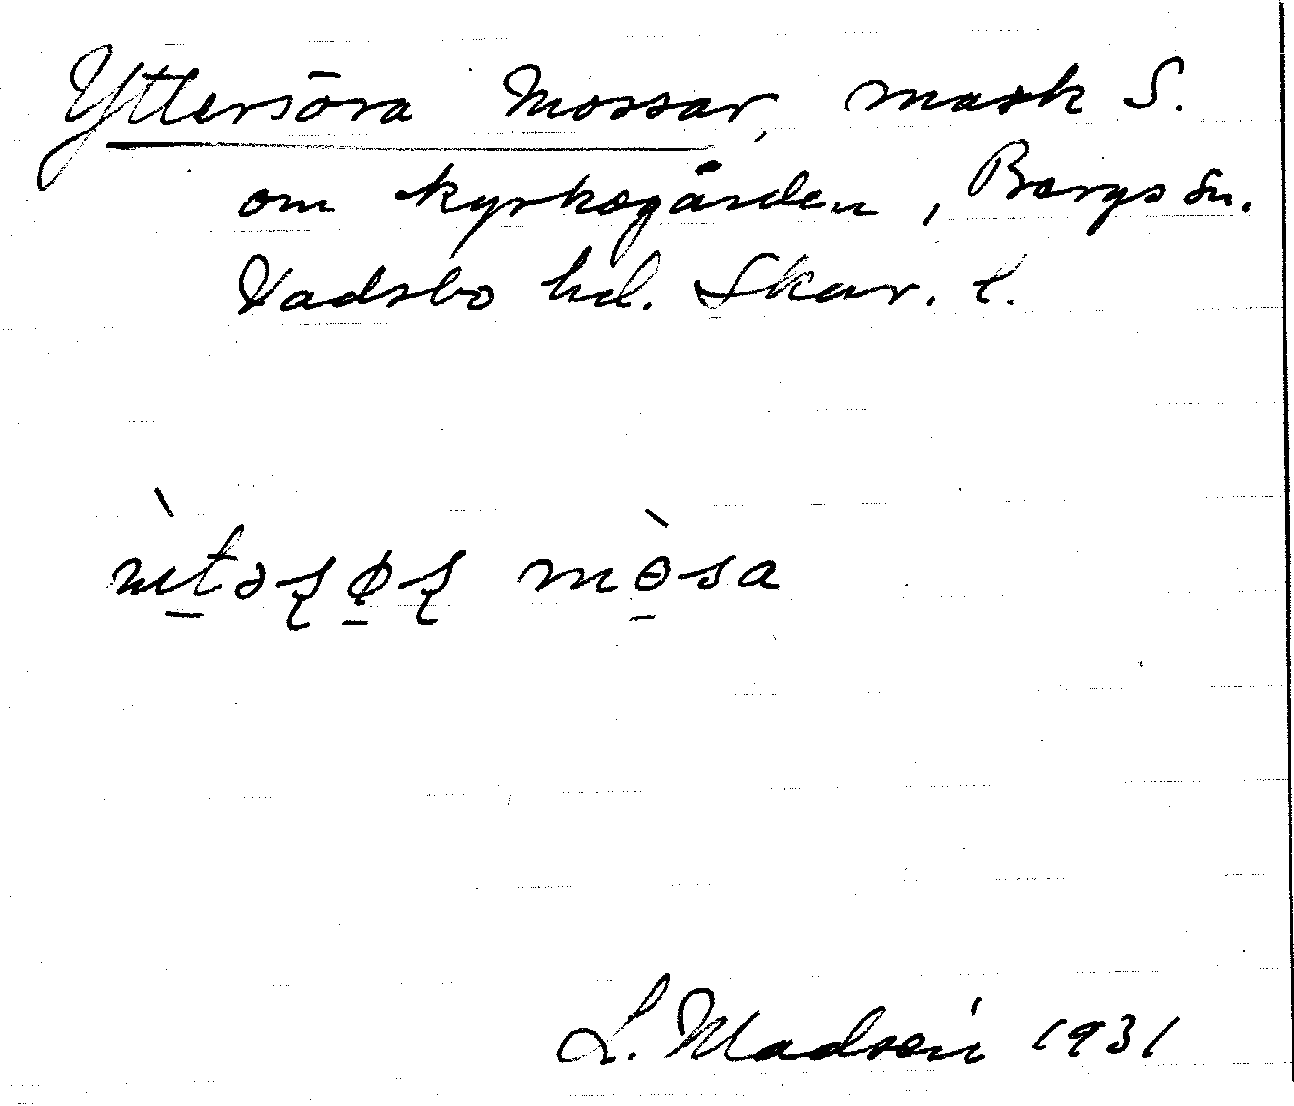 Yttersöra mossar, mark S.
om kyrkogården, Bergs sn.
Vadsbo hd. Skar. l.
mòsa
L. Madsén 1931